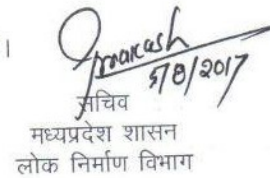 ।
Prakash
5/8/2017
सचिव
मध्यप्रदेश शासन
लोक निर्माण विभाग